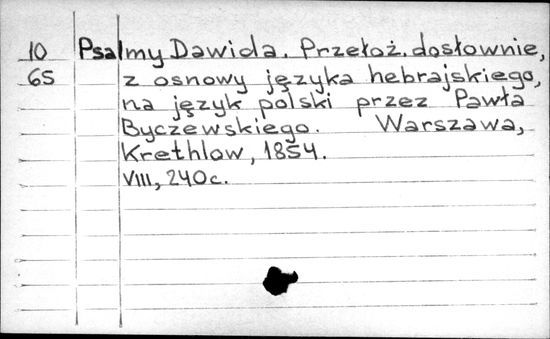 10 Psalmy Dawida. Przełoż. dosłownie,
65 z osnowy języka hebrajskiego,
na język polski przez Pawła
Byczewskiego. Warszawa,
Krethlow, 1854.
VIII, 240 c.